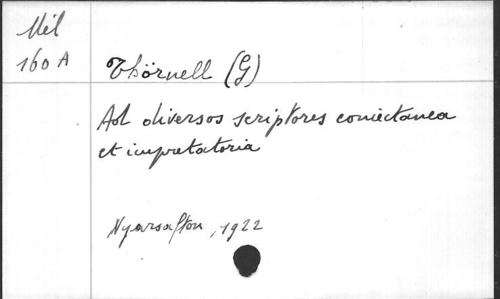 Mél
160 A
Thörnell (G)
Ad diversos scriptores coniectanea
et impretatoria
Nyarsafton, 1922